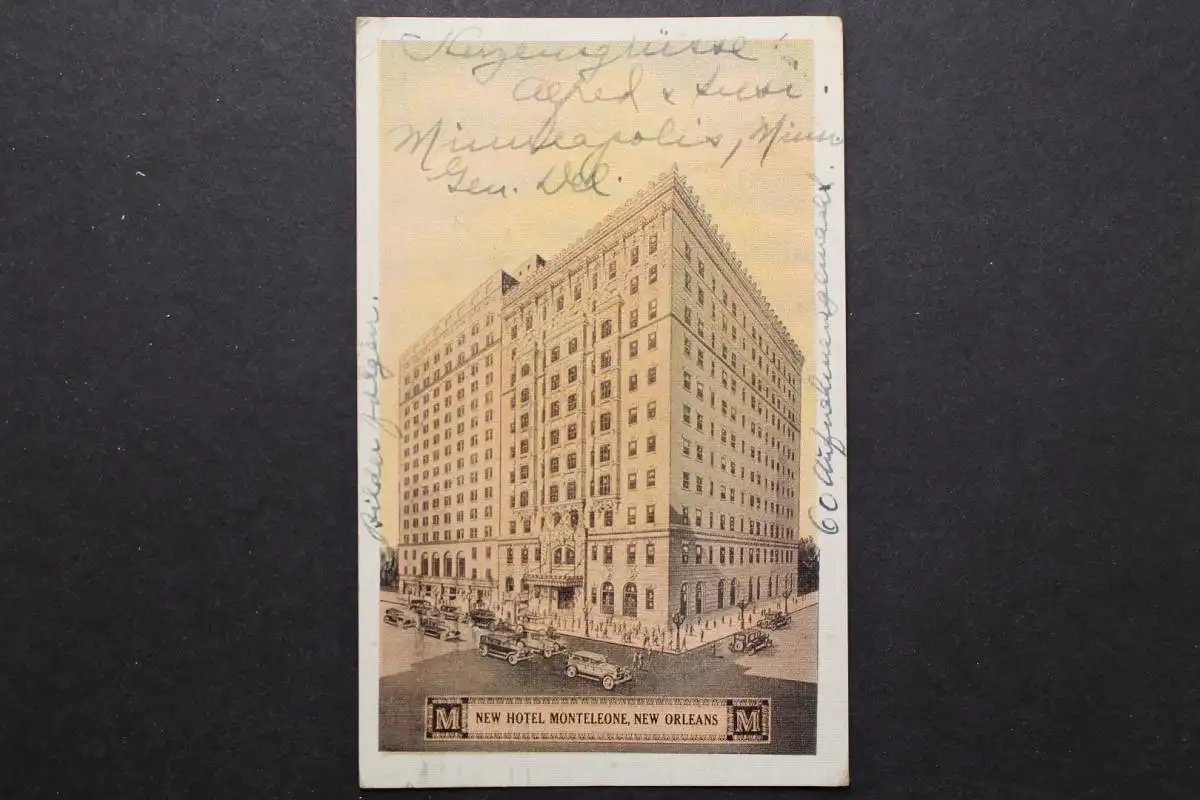 Kuzengrüsse!
Alfred & Susi.
Minneapolis, Minn
Gen. Del.
Bilder folgen.
60 Aufnahmen gemacht.
M NEW HOTEL MONTELEONE, NEW ORLEANS M